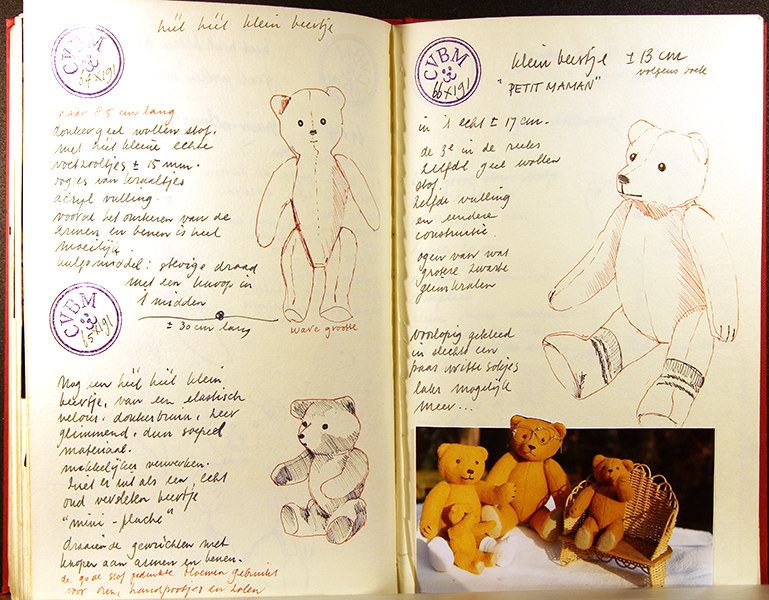 CVBM
64 x 191
héél héél klein beertje
naar 8.5 cm lang.
donkergeel wollen stof.
met héél kleine echte
voetzooltjes ± 15 mm.
oogjes van kraaltjes
acryl vulling.
vooral het omkeren van de
armen en benen is heel
moeilijk.
hulpmiddel: stevige draad
met een knoop in
't midden
± 30 cm lang
ware grootte
CVBM
65 x 191
Nog een héél héél klein
beertje, van een elastisch
velours, donkerbruin, zeer
glimmend, dun soepel
materiaal.
makkelijker verwerken.
Ziet er uit als een echt
oud versleten beertje
"mini-pluche"
draaiende gewrichten met
knopen aan armen en benen.
de goede stof gedrukte bloemen gebruikt
voor oren, handpootjes en zolen
CVBM
66 x 191
klein beertje ± 13 cm
volgens boek
"PETIT MAMAN"
in 't echt ± 17 cm.
de 3e in de reeks
zelfde geel wollen
stof.
zelfde vulling
en eendere
constructie.
ogen van wat
grotere zwarte
glaskralen
voorlopig gekleed
in slechts een
paar witte sokjes
later mogelijk
meer...